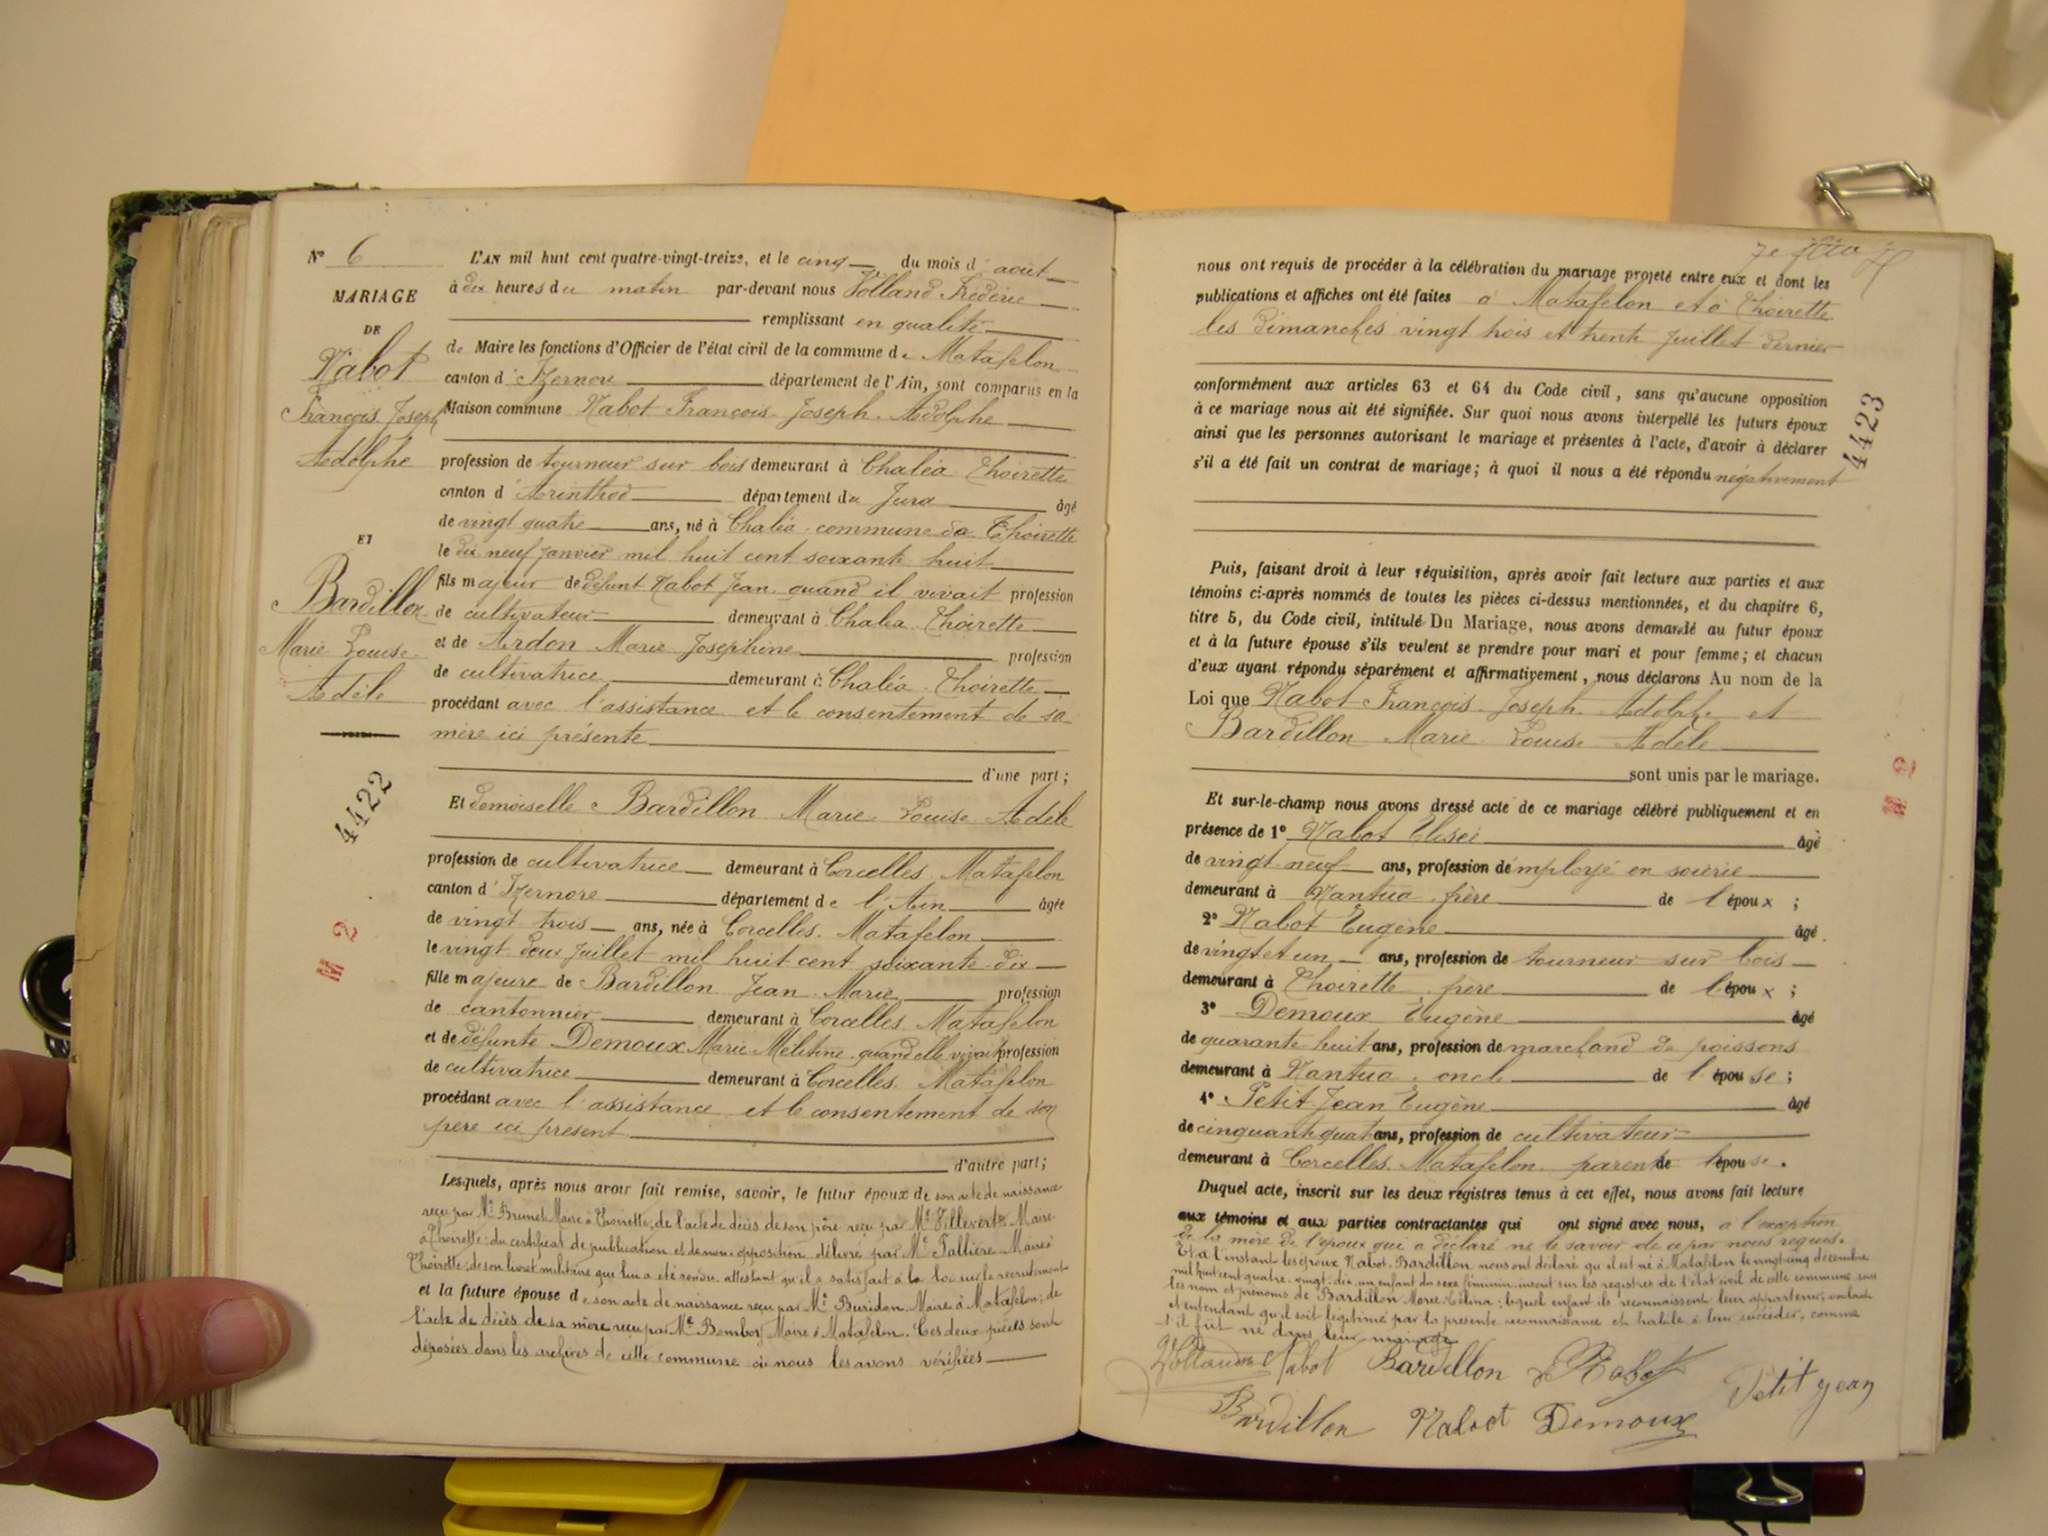 N° 6
MARIAGE
DE
Nabot
François Joseph
Adolphe
ET
Bardillon
Marie Louise
Adèle
4422
M 2
L'AN mil huit cent quatre-vingt-treize, et le cinq du mois d'août
à dix heures du matin par-devant nous Volland Frédéric
remplissant en qualité
de Maire les fonctions d'Officier de l'état civil de la commune de Matafelon
canton d'Izernore département de l'Ain, sont comparus en la
Maison commune Nabot François Joseph Adolphe
profession de tourneur sur bois demeurant à Chaléa Thoirette
canton d'Arinthod département du Jura âgé
de vingt quatre ans, né à Chaléa commune de Thoirette
le dix neuf janvier mil huit cent soixante huit
fils majeur de défunt Nabot Jean quand il vivait profession
de cultivateur demeurant à Chaléa Thoirette
et de Ardon Marie Josephine profession
de cultivatrice demeurant à Chaléa Thoirette
procédant avec l'assistance et le consentement de sa
mère ici présente
d'une part;
Et demoiselle Bardillon Marie Louise Adèle
profession de cultivatrice demeurant à Corcelles Matafelon
canton d'Izernore département de l'Ain âgée
de vingt trois ans, née à Corcelles Matafelon
le vingt deux juillet mil huit cent soixante dix
fille majeure de Bardillon Jean Marie profession
de cantonnier demeurant à Corcelles Matafelon
et de défunte Demoux Marie Melitine quand elle vivait profession
de cultivatrice demeurant à Corcelles Matafelon
procédant avec l'assistance et le consentement de son
père ici présent
d'autre part;
Lesquels, après nous avoir fait remise, savoir, le futur époux de son acte de naissance
reçu par Mr Brunet Maire à Thoirette; de l'acte de décès de son père reçu par Mr Villevert Maire
à Thoirette; du certificat de publication et de non opposition délivré par Mr Tallière Maire à
Thoirette; de son livret militaire qui lui a été rendu attestant qu'il a satisfait à la loi sur le recrutement
et la future épouse de son acte de naissance reçu par Mr Buridon Maire à Matafelon; de
l'acte de décès de sa mère reçu par Mr Bomboy Maire à Matafelon. Ces deux pièces sont
déposées dans les archives de cette commune où nous les avons vérifiées
nous ont requis de procéder à la célébration du mariage projeté entre eux et dont les
publications et affiches ont été faites à Matafelon et à Thoirette
les dimanches vingt trois et trente juillet dernier
conformément aux articles 63 et 64 du Code civil, sans qu'aucune opposition
à ce mariage nous ait été signifiée. Sur quoi nous avons interpellé les futurs époux
ainsi que les personnes autorisant le mariage et présentes à l'acte, d'avoir à déclarer
s'il a été fait un contrat de mariage; à quoi il nous a été répondu négativement
4423
Puis, faisant droit à leur réquisition, après avoir fait lecture aux parties et aux
témoins ci-après nommés de toutes les pièces ci-dessus mentionnées, et du chapitre 6,
titre 5, du Code civil, intitulé Du Mariage, nous avons demandé au futur époux
et à la future épouse s'ils veulent se prendre pour mari et pour femme; et chacun
d'eux ayant répondu séparément et affirmativement, nous déclarons Au nom de la
Loi que Nabot François Joseph Adolphe et
Bardillon Marie Louise Adèle
sont unis par le mariage.
M 2
Et sur-le-champ nous avons dressé acte de ce mariage célébré publiquement et en
présence de 1° Nabot Elisée âgé
de vingt neuf ans, profession d'employé en soierie
demeurant à Nantua frère de l'époux;
2° Nabot Eugène âgé
de vingt et un ans, profession de tourneur sur bois
demeurant à Thoirette frère de l'époux;
3° Demoux Eugène âgé
de quarante huit ans, profession de marchand de poissons
demeurant à Nantua oncle de l'épouse;
4° Petit-Jean Eugène âgé
de cinquante quatre ans, profession de cultivateur
demeurant à Corcelles Matafelon parent de l'épouse.
Duquel acte, inscrit sur les deux registres tenus à cet effet, nous avons fait lecture
aux témoins et aux parties contractantes qui ont signé avec nous, à l'exception
de la mère de l'époux qui a déclaré ne le savoir de ce par nous requis.
Et à l'instant les époux Nabot Bardillon nous ont déclaré qu'il est né à Matafelon le vingt cinq décembre
mil huit cent quatre-vingt-dix un enfant du sexe féminin inscrit sur les registres de l'état civil de cette commune sous
les nom et prénoms de Bardillon Marie Célina; lequel enfant ils reconnaissent leur appartenir, voulant
et entendant qu'il soit légitimé par la présente reconnaissance et habile à leur succéder, comme
s'il fût né dans leur mariage
Volland Nabot Bardillon Nabot Petit Jean
Bardillon Nabot Demoux